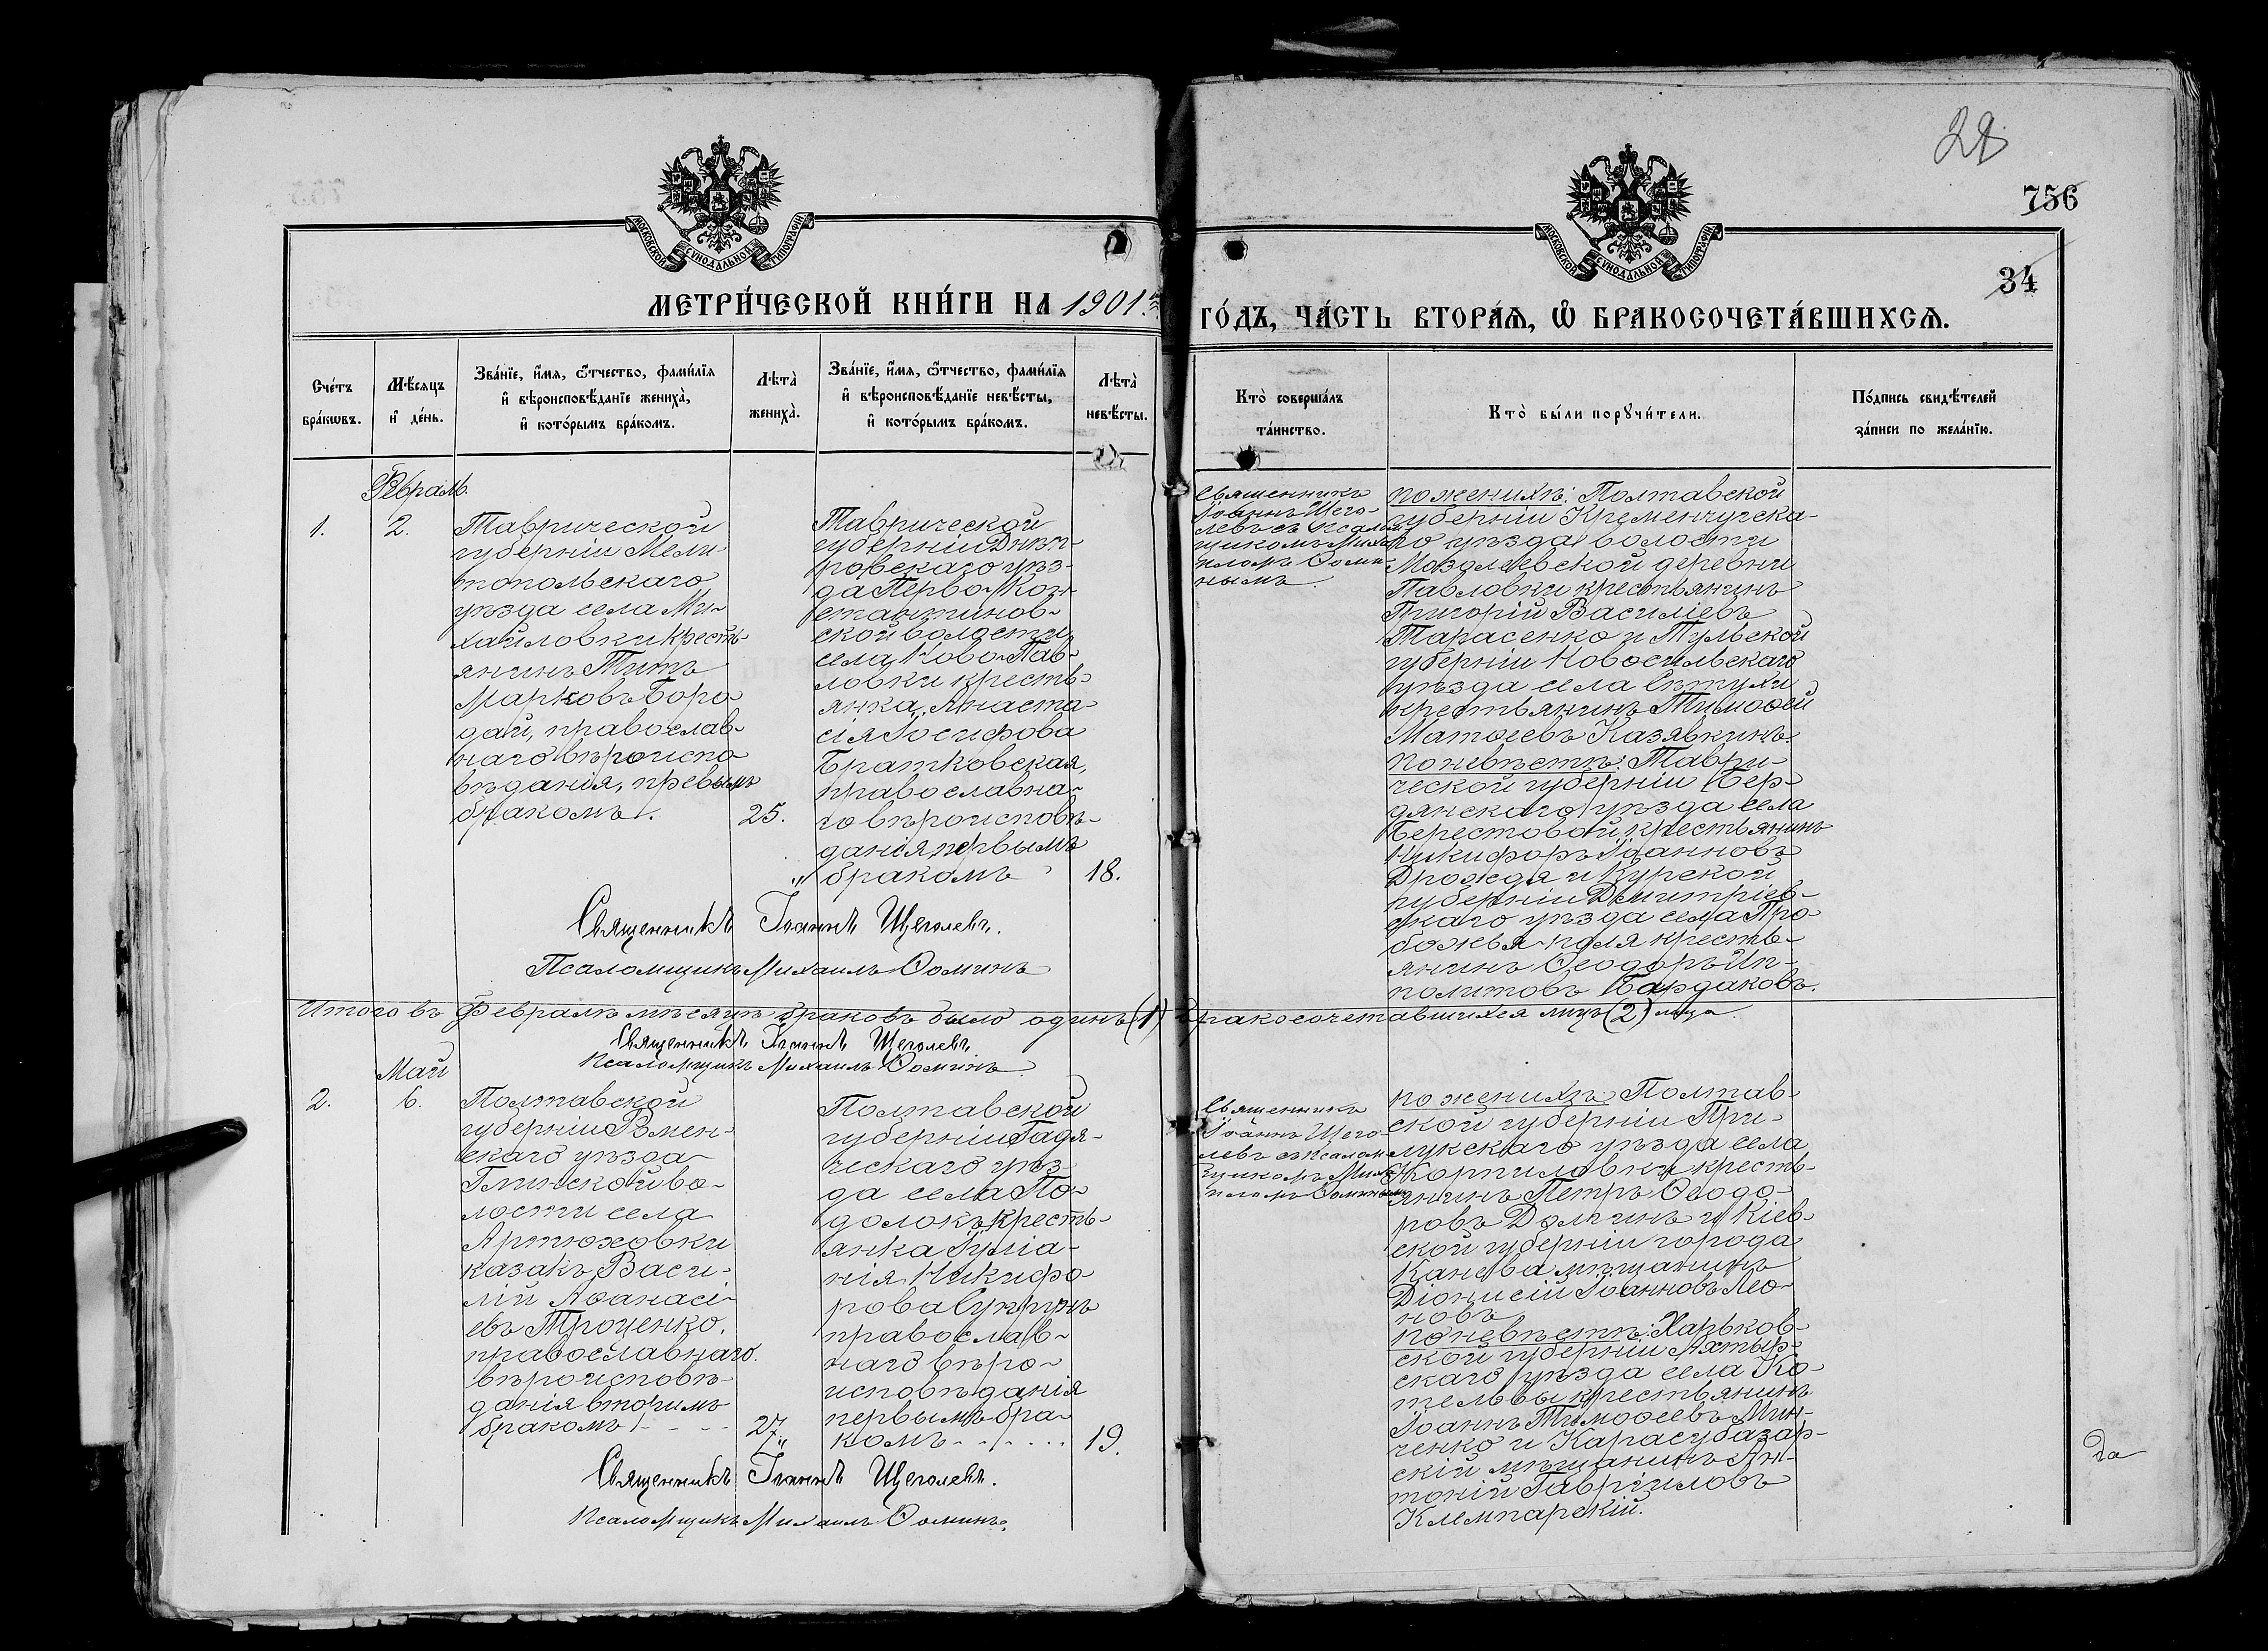 28
756
34
МОСКОВСКОЙ СѴНОДАЛЬНОЙ ТИПОГРАФІИ
МОСКОВСКОЙ СѴНОДАЛЬНОЙ ТИПОГРАФІИ
МЕТРИ́ЧЕСКОЙ КНИ́ГИ НА 1901й
ГО́ДЪ, ЧА́СТЬ ВТОРА́Ѧ, Ѽ БРАКОСОЧЕТА́ВШИХСѦ.
Счéтъ
брáкѡвъ.
Мѣ́сяцъ
и҆ дéнь.
Звáнїе, и҆́мѧ, ѻ҆́тчество, фами́лїѧ
и҆ вѣроисповѣ́данїе женихà,
и҆ котóрымъ брáкомъ.
Лѣтà
женихà.
Звáнїе, и҆́мѧ, ѻ҆́тчество, фами́лїѧ
и҆ вѣроисповѣ́данїе невѣ́сты,
и҆ котóрымъ брáкомъ.
Лѣтà
невѣ́сты.
Ктò совершáлъ
тáинство.
Ктò бы́ли порꙋчи́тели.
Пóдпись свидѣ́телей
зáписи по желáнїю.
Февраль.
1.
2.
Таврической
губерніи Мели-
топольскаго
уѣзда села Ми-
хайловки кресть-
янинъ Титъ
Марковъ Боро-
дай, православ-
наго вѣроиспо
вѣданія, првымъ
бракомъ.
25.
Таврической
губерніи Днѣп-
ровскаго уѣз-
да Перво-Кон-
стантинов-
ской волости
села Ново-Пав-
ловки кресть-
янка Анаста-
сія Іосифова
Братковская,
православна-
го вѣроисповѣ-
данія, первымъ
„ бракомъ
18.
Священникъ
Іоаннъ Щего-
левъ съ псалом
щикомъ Миха
иломъ Ѳоми-
нымъ.
по женихѣ: Полтавской
губерніи Кременчугска-
го уѣзда волости
деревни
Павловки крестьянинъ
Григорій Василіевъ
Тарасенко и Тульской
губерніи Новосильскаго
уѣзда села
крестьянинъ Тимоѳей
Матѳеевъ Казявкинъ.
по невѣстѣ: Таври-
ческой губерніи Бер-
дянскаго уѣзда села
Берестовой крестьянинъ
Никифоръ Іоанновъ
Дрожда и Курской
губерніи Дмитріев-
скаго уѣзда села Про
божья-поля кресть-
янинъ Ѳеодоръ Ип-
политовъ Бардаковъ.
Священникъ Іоаннъ Щеголевъ.
Псаломщикъ Михаилъ Ѳоминъ
Итого въ Февралѣ мѣсяцѣ браковъ было одинъ (1) бракосочетавшихся лицъ (2) лица.
Священникъ Іоаннъ Щеголевъ
Псаломщикъ Михаилъ Ѳоминъ.
Май
2.
6.
Полтавской
губерніи Ромен-
скаго уѣзда
Глинской во-
лости села
Артюховки
казакъ Васи-
лій Аѳанасі-
евъ Троценко,
православнаго.
вѣроисповѣ-
данія вторымъ
бракомъ - - - -
27.
„
Полтавской
губерніи Гадя-
ческаго уѣз-
да села По-
долокъ кресть-
янка Іуліа-
нія Никифо-
рова Супрунъ
православ-
наго вѣро-
исповѣданія
первымъ бра-
комъ - - . . . .
19.
Священникъ
Іоаннъ Щего-
левъ съ псалом
щикомъ Миха
иломъ Ѳоминымъ
по женихѣ Полтав-
ской губерніи При-
лукскаго уѣзда села
Корниловки кресть-
янинъ Петръ Ѳеодо-
ровъ Долгинъ и Кіев-
ской губерніи города
Канева мѣщанинъ
Діонисій Іоанновъ Лео-
новъ
по невѣстѣ: Харьков-
ской губерніи Ахтыр-
скаго уѣзда села Ко-
тельвы крестьянинъ
Іоаннъ Тимоѳеевъ Мин-
ченко и Карасубазар-
скій мѣщанинъ Ан-
тоній Гавріиловъ
Клемпарскій.
Священникъ Іоаннъ Щеголевъ.
Псаломщикъ Михаилъ Ѳоминъ.
2а